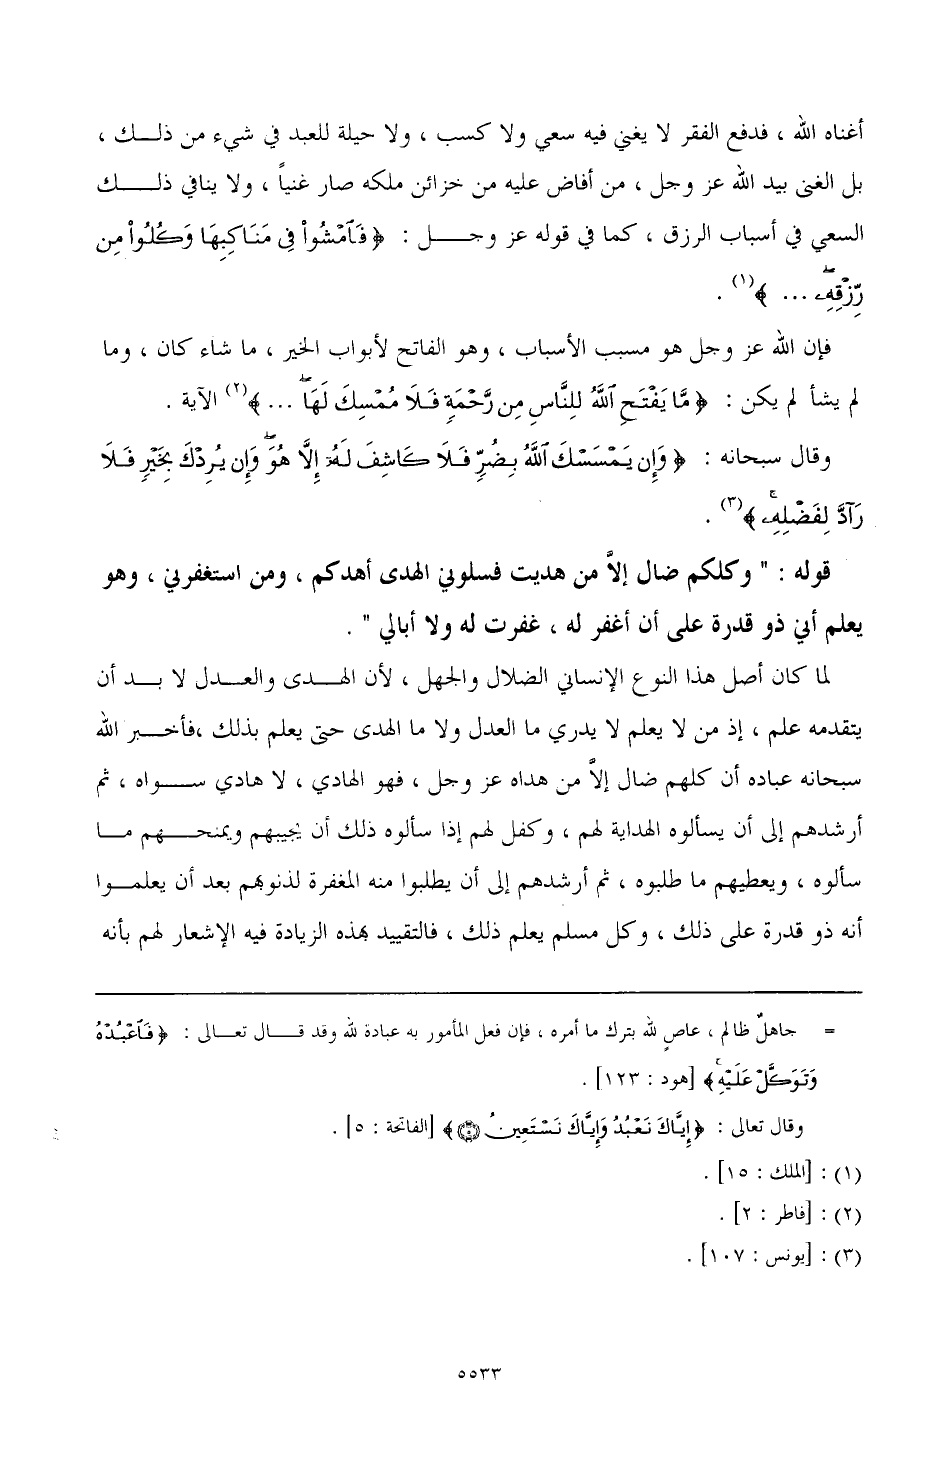 أغناه الله ، فدفع الفقر لا يغني فيه سعي ولا كسب ، ولا حيلة للعبد في شيء من ذلــك ،
بل الغنى بيد الله عز وجل ، من أفاض عليه من خزائن ملكه صار غنياً ، ولا ينافي ذلـــك
السعي في أسباب الرزق ، كما في قوله عز وجـــل : ﴿ فَٱمْشُوا۟ فِى مَنَاكِبِهَا وَكُلُوا۟ مِن
رِّزْقِهِۦۖ ... ﴾(١) .
فإن الله عز وجل هو مسبب الأسباب ، وهو الفاتح لأبواب الخير ، ما شاء كان ، وما
لم يشأ لم يكن : ﴿ مَّا يَفْتَحِ ٱللَّهُ لِلنَّاسِ مِن رَّحْمَةٍ فَلَا مُمْسِكَ لَهَاۖ ... ﴾(٢) الآية .
وقال سبحانه : ﴿ وَإِن يَمْسَسْكَ ٱللَّهُ بِضُرٍّ فَلَا كَاشِفَ لَهُۥٓ إِلَّا هُوَۖ وَإِن يُرِدْكَ بِخَيْرٍ فَلَا
رَآدَّ لِفَضْلِهِۦۚ ﴾(٣) .
قوله : " وكلكم ضال إلاَّ من هديت فسلوني الهدى أهدكم ، ومن استغفرني ، وهو
يعلم أني ذو قدرة على أن أغفر له ، غفرت له ولا أبالي " .
لما كان أصل هذا النوع الإنساني الضلال والجهل ، لأن الهـدى والعـدل لا بـد أن
يتقدمه علم ، إذ من لا يعلم لا يدري ما العدل ولا ما الهدى حتى يعلم بذلك ،فأخـبر الله
سبحانه عباده أن كلهم ضال إلاَّ من هداه عز وجل ، فهو الهادي ، لا هادي ســواه ، ثم
أرشدهم إلى أن يسألوه الهداية لهم ، وكفل لهم إذا سألوه ذلك أن يجيبهم ويمنحـــهم مـا
سألوه ، ويعطيهم ما طلبوه ، ثم أرشدهم إلى أن يطلبوا منه المغفرة لذنوبهم بعد أن يعلمـوا
أنه ذو قدرة على ذلك ، وكل مسلم يعلم ذلك ، فالتقييد بهذه الزيادة فيه الإشعار لهم بأنه
= جاهلٌ ظالم ، عاصٍ لله بترك ما أمره ، فإن فعل المأمور به عبادة لله وقد قـــال تعــالى : ﴿ فَٱعْبُدْهُ
وَتَوَكَّلْ عَلَيْهِۚ ﴾ [هود : ١٢٣] .
وقال تعالى : ﴿ إِيَّاكَ نَعْبُدُ وَإِيَّاكَ نَسْتَعِينُ ۝٥ ﴾ [الفاتحة : ٥] .
(١) : [الملك : ١٥] .
(٢) : [فاطر : ٢] .
(٣) : [يونس : ١٠٧] .
٥٥٣٣